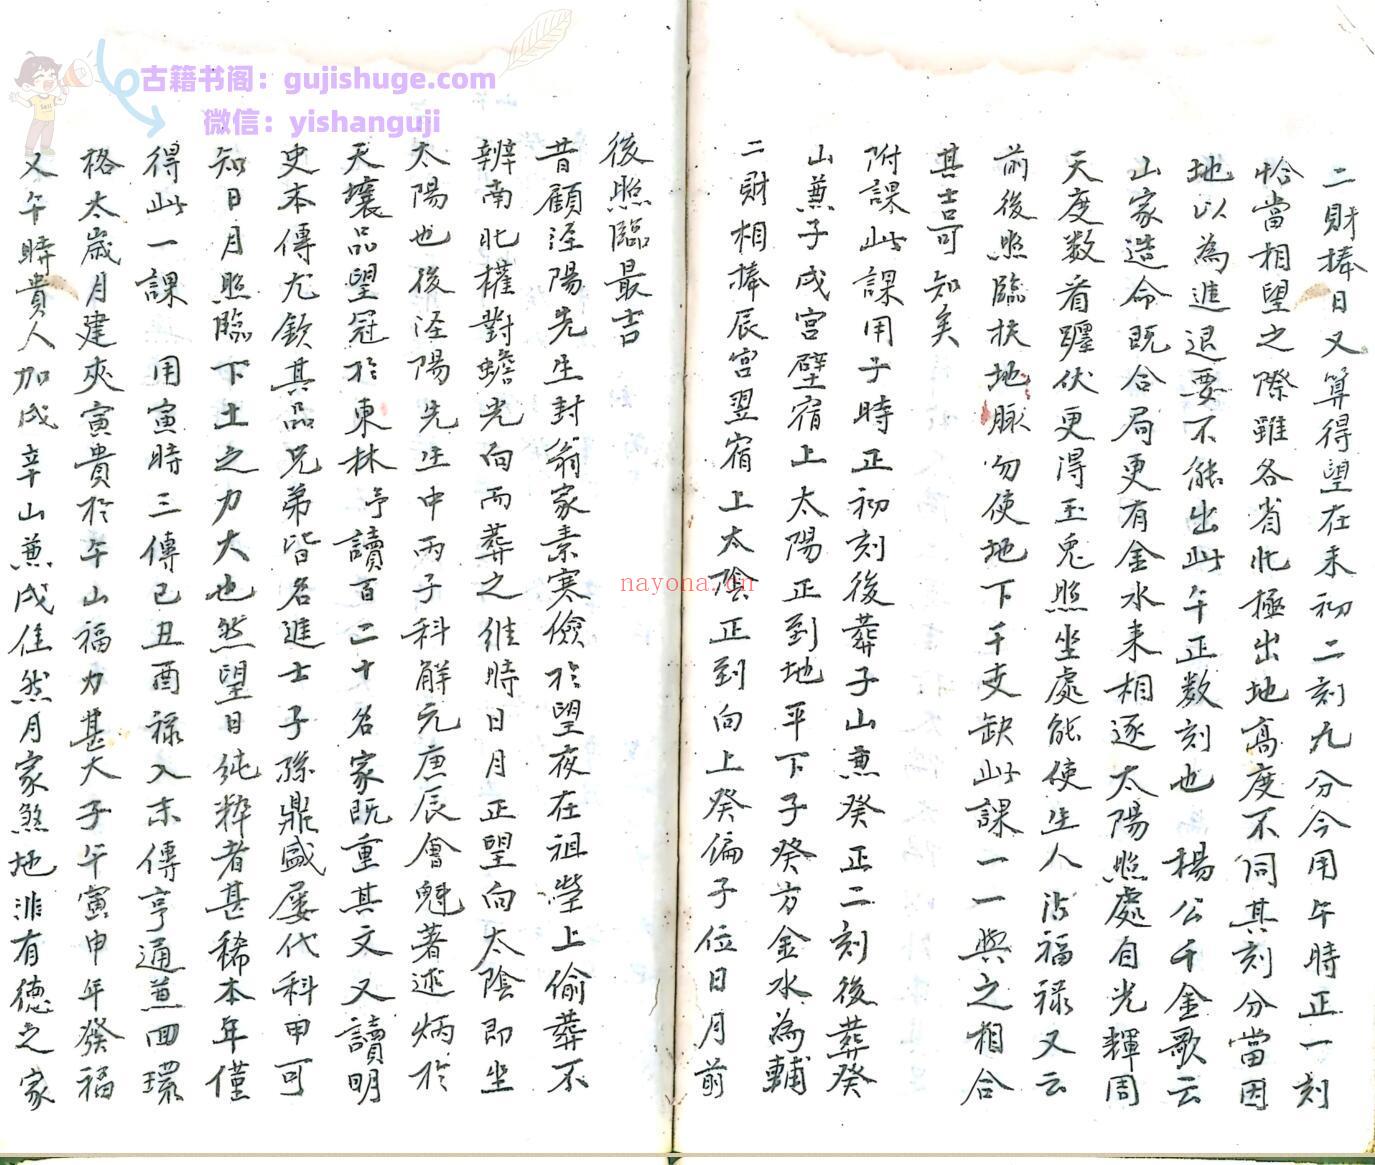 古籍书阁：gujishuge.com
微信：yishanguji
二財捧日又算得望在未初二刻九分今用午時正一刻
恰當相望之際雖各省北極出地高度不同其刻分當因
地以為進退要不能出此午正数刻也 楊公千金歌云
山家造命既合局更有金水来相逐太陽照處自光輝周
天度数看躔伏更得玉兎照坐處能使生人沾福禄又云
前後照臨扶地脉勿使地下干支缺此課一一與之相合
其吉可知矣
附課此課用子時正初刻後葬子山兼癸正二刻後葬癸
山兼子戌宮壁宿上太陽正到地平下子癸方金水為輔
二財相捧辰宮翌宿上太陰正到向上癸偏子位日月前
後照臨最吉
昔顧涇陽先生封翁家素寒儉於望夜在祖塋上偷葬不
辨南北權對蟾光向而葬之維時日月正望向太陰即坐
太陽也後涇陽先生中丙子科解元庚辰會魁著述炳於
天壤品望冠於東林予讀百二十名家既重其文又讀明
史本傳尤欽其品兄弟皆名進士子孫鼎盛屡代科甲可
知日月照臨下土之力大也然望日純粹者甚稀本年僅
得此一課 用寅時三傳巳丑酉禄入末傳亨通兼回環
格太歲月建夾寅貴於午山福力甚大子午寅申年發福
又午時貴人加戌辛山兼戌佳然月家煞地非有德之家
nayona.cn